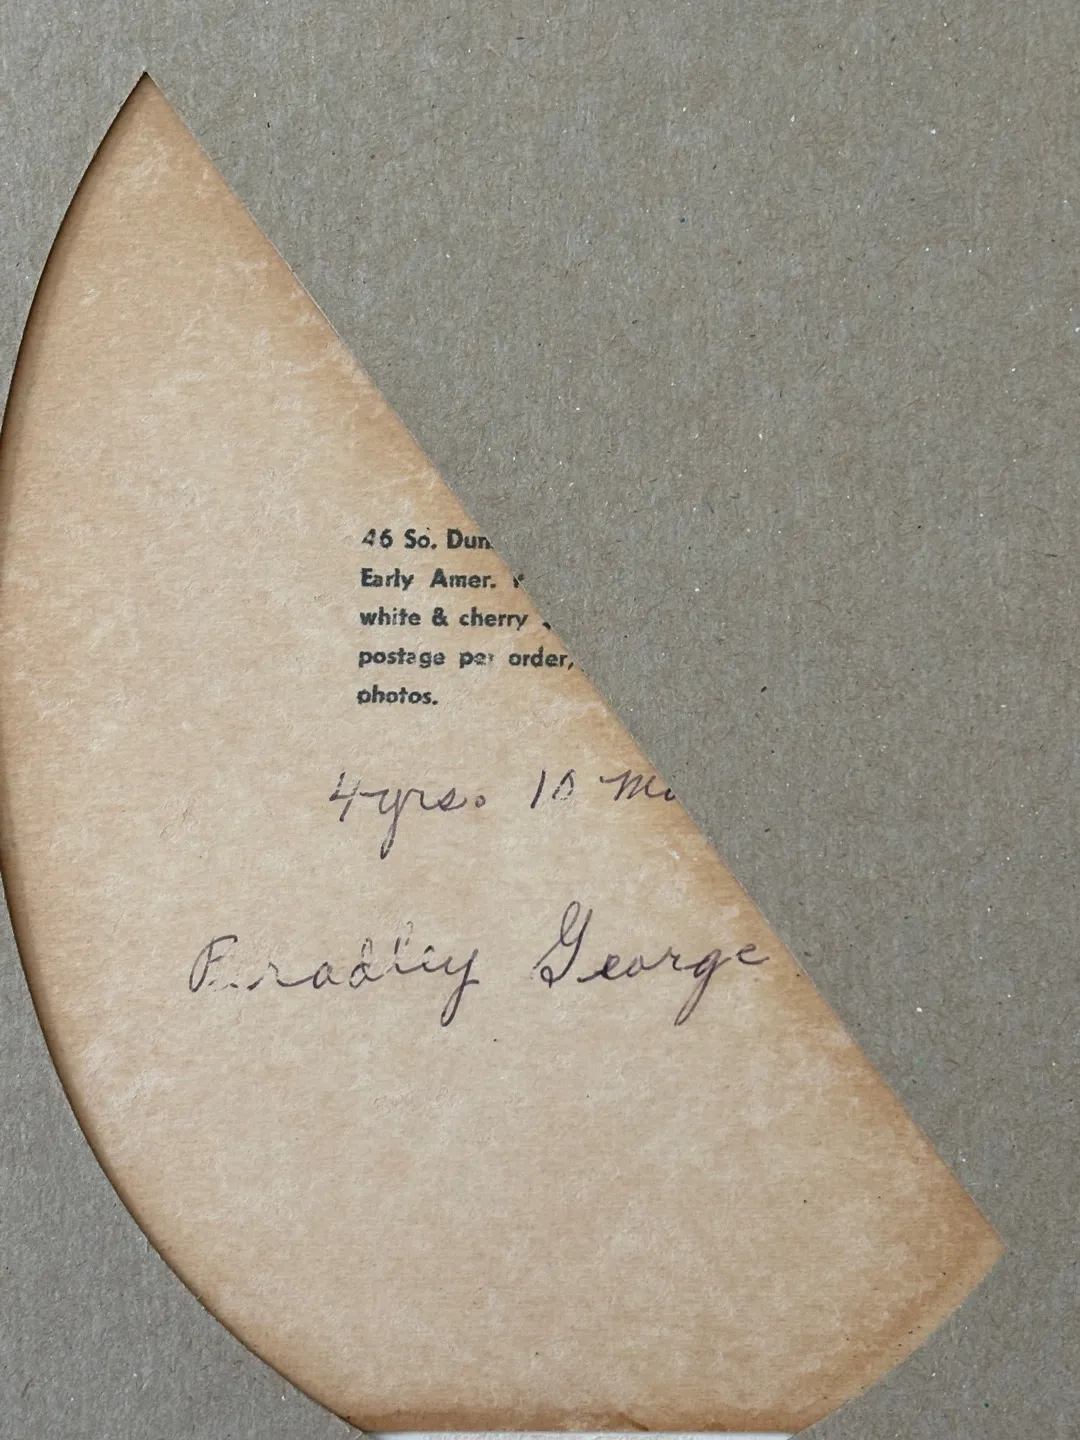 46 So. Dun
Early Amer.
white & cherry
postage per order,
photos.
4 yrs. 10
Bradley George